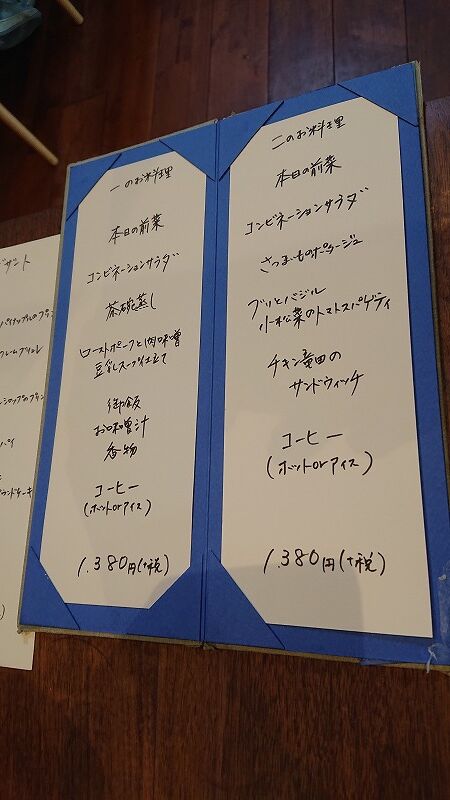 一のお料理
本日の前菜
コンビネーションサラダ
茶碗蒸し
ローストポークと肉味噌
豆乳スープ仕立て
御飯
お味噌汁
香物
コーヒー
(ホットorアイス)
1.380円(+税)
二のお料理
本日の前菜
コンビネーションサラダ
さつまいものポタージュ
ブリとバジル
小松菜のトマトスパゲティ
チキン竜田の
サンドウィッチ
コーヒー
(ホットorアイス)
1.380円(+税)
ザート
パイナップルのブラン
ブリュレ
シロップのブラン
パイ
ウンドケーキ